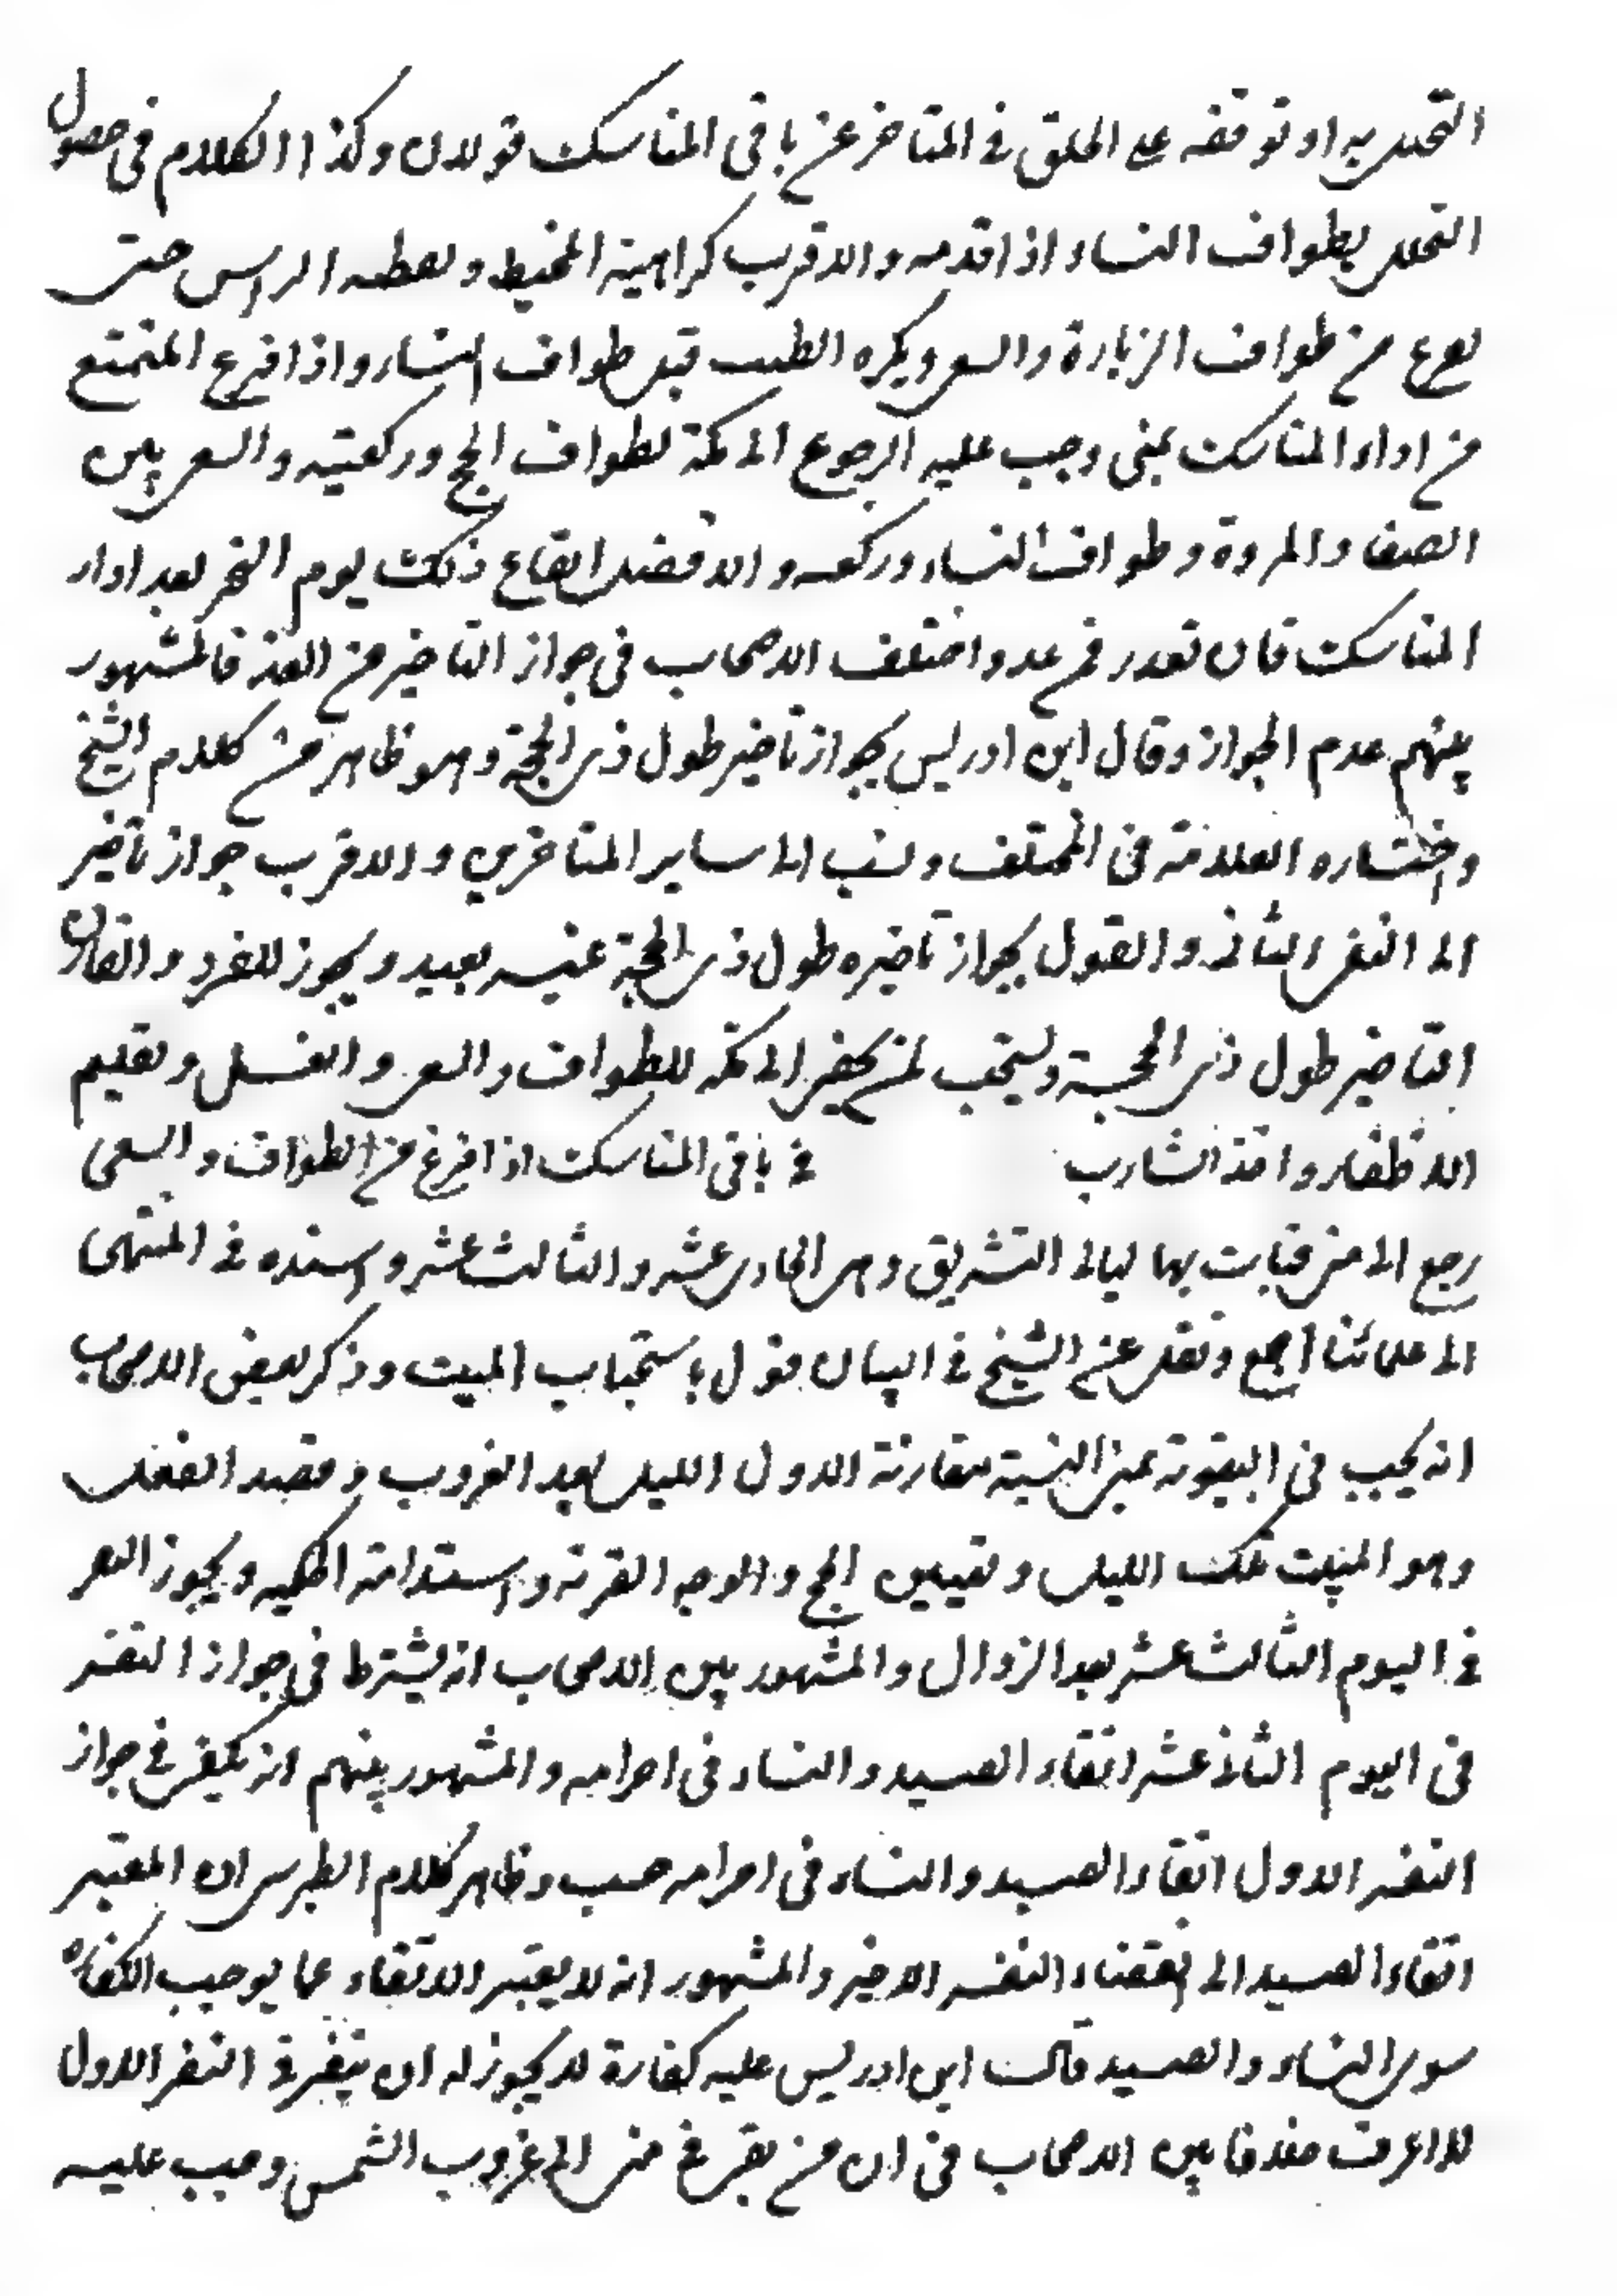 التحلل به او توقفه على الحلق في المتاخر عن باقي المناسك قولان وكذا الكلام في حصول
التحلل بطواف النساء اذا قدمه والاقرب كراهية المخيط و تغطيه الراس حتى
يفرع من طواف الزيارة والسعي ويكره الطيب قبل طواف النساء واذا فرع المتمتع
من اداء المناسك بمنى وجب عليه الرجوع الى مكة لطواف الحج وركعتيه والسعي بين
الصفا والمروة وطواف النساء وركعتيه والافضل ايقاع ذلك يوم النحر بعد اداء
المناسك فان تعذر فمن غد واختلف الاصحاب في جواز التاخير من الغد فالمشهور
بينهم عدم الجواز وقال ابن ادريس بجواز تاخير طول ذي الحجة وهو ظاهر من كلام الشيخ
واختاره العلامة في المختلف ونسب الى ساير المتاخرين والاقرب جواز تاخير
الى النفر الثاني والقول بجواز تاخيره طول ذي الحجة غير بعيد ويجوز للمفرد والقارن
التاخير طول ذي الحجة ويستحب لمن يمضي الى مكه للطواف والسعي والغسل وتقليم
الاظفار واخذ الشارب في باقي المناسك اذا فرغ من الطواف والسعى
رجع الى منى فبات بها ليالي التشريق وهي الحادي عشر والثالث عشر واسنده في المنتهى
الى علمائنا اجمع ونقل عن الشيخ في البيان قول باستحباب المبيت وذكر بعض الاصحاب
انه يجب في البيتوتة بمنى النية مقارنة الاول الليل بعد الغروب وقصد الفعل
وهو المبيت تلك الليل وتعيين الحج والوجه القربة واستدامة الحكميه ويجوز النفر
في اليوم الثالث عشر بعد الزوال والمشهور بين الاصحاب انه يشترط في جواز النفر
في اليوم الثاني عشر اتقاء الصيد والنساء في احرامه والمشهور بينهم انه يكفي في جواز
النفر الاول اتقاء الصيد والنساء في احرامه حسب وظاهر كلام الطبرسي ان المعتبر
اتقاء الصيد الى انقضاء النفر الاخير والمشهور انه لا يعتبر الاتقاء عما يوجب الكفاره
سوى النساء والصيد قال ابن ادريس عليه كفارة لا يجوز له ان ينفر في النفر الاول
لا اعرف خلافا بين الاصحاب في ان من بقى في منى الى غروب الشمس وجب عليه